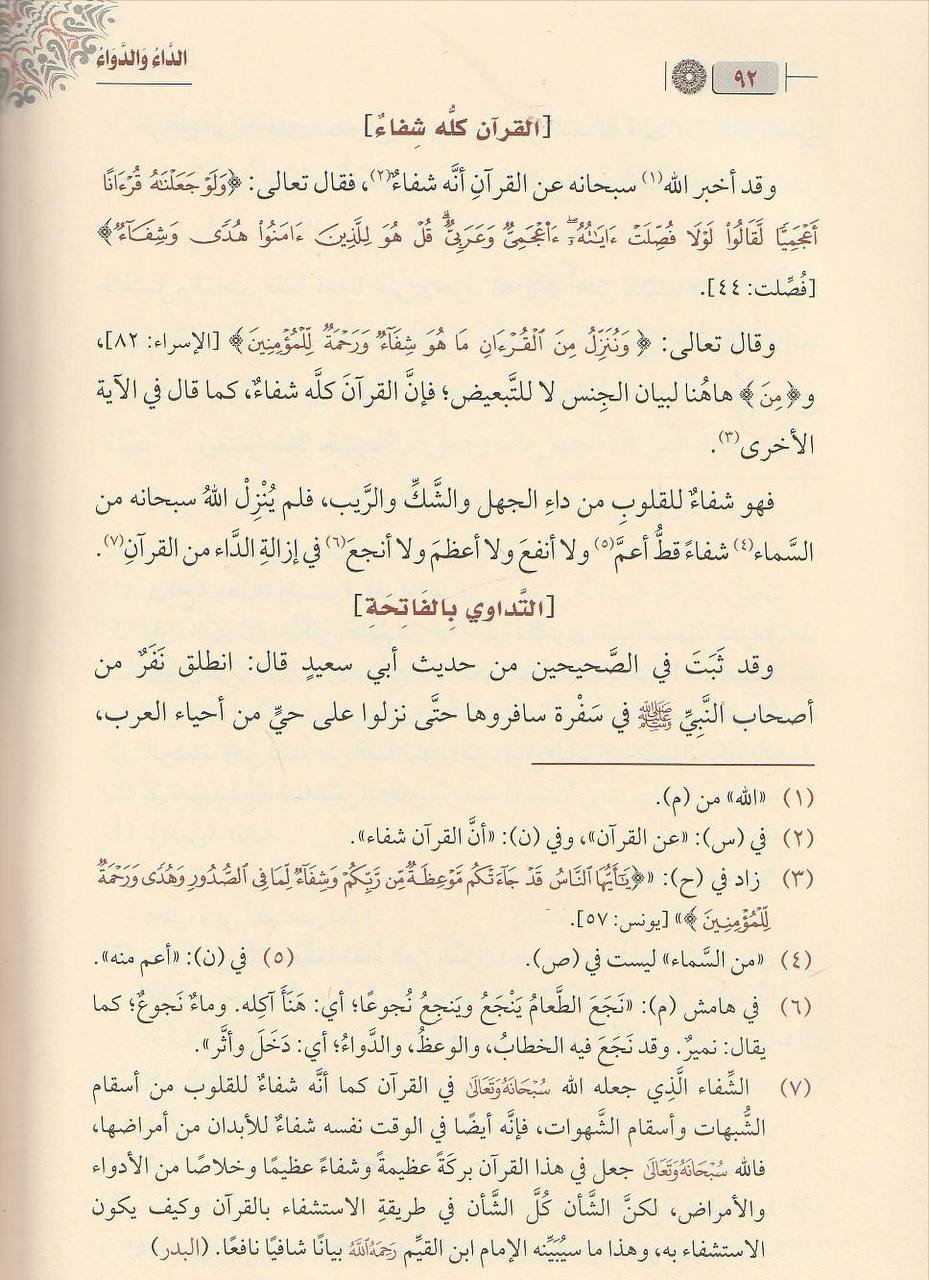 الدَّاءُ وَالدَّوَاءُ
٩٢
[القرآن كلُّه شِفاءٌ]
وقد أخبر الله(١) سبحانه عن القرآنِ أنَّه شفاءٌ(٢)، فقال تعالى: ﴿وَلَوْ جَعَلْنَٰهُ قُرْءَانًا
أَعْجَمِيًّا لَّقَالُوا۟ لَوْلَا فُصِّلَتْ ءَايَٰتُهُۥٓ ۖ ءَا۬عْجَمِىٌّ وَعَرَبِىٌّ ۗ قُلْ هُوَ لِلَّذِينَ ءَامَنُوا۟ هُدًى وَشِفَآءٌ﴾
[فُصِّلت: ٤٤].
وقال تعالى: ﴿وَنُنَزِّلُ مِنَ ٱلْقُرْءَانِ مَا هُوَ شِفَآءٌ وَرَحْمَةٌ لِّلْمُؤْمِنِينَ﴾ [الإسراء: ٨٢]،
و﴿مِنَ﴾ هاهُنا لبيان الجِنس لا للتَّبعيض؛ فإنَّ القرآنَ كلَّه شفاءٌ، كما قال في الآية
الأخرى(٣).
فهو شفاءٌ للقلوبِ من داءِ الجهل والشَّكِّ والرَّيب، فلم يُنْزِلْ اللهُ سبحانه من
السَّماء(٤) شفاءً قطُّ أعمَّ(٥) ولا أنفعَ ولا أعظمَ ولا أنجعَ(٦) في إزالةِ الدَّاء من القرآنِ(٧).
[التَّداوي بِالفَاتِحَةِ]
وقد ثَبَتَ في الصَّحيحين من حديث أبي سعيدٍ قال: انطلق نَفَرٌ من
أصحاب النَّبيِّ ﷺ في سَفْرة سافروها حتَّى نزلوا على حيٍّ من أحياء العرب،
(١) «الله» من (م).
(٢) في (س): «عن القرآن»، وفي (ن): «أنَّ القرآن شفاء».
(٣) زاد في (ح): «﴿يَٰٓأَيُّهَا ٱلنَّاسُ قَدْ جَآءَتْكُم مَّوْعِظَةٌ مِّن رَّبِّكُمْ وَشِفَآءٌ لِّمَا فِى ٱلصُّدُورِ وَهُدًى وَرَحْمَةٌ
لِّلْمُؤْمِنِينَ﴾» [يونس: ٥٧].
(٤) «من السَّماء» ليست في (ص). (٥) في (ن): «أعم منه».
(٦) في هامش (م): «نَجَعَ الطَّعامُ يَنْجَعُ ويَنجِعُ نُجوعًا؛ أي: هَنَأَ آكِله. وماءٌ نَجوعٌ؛ كما
يقال: نميرٌ. وقد نَجَعَ فيه الخطابُ، والوعظُ، والدَّواءُ؛ أي: دَخَلَ وأثَّر».
(٧) الشِّفاء الَّذِي جعله الله سُبْحَانَهُ وَتَعَالَىٰ في القرآن كما أنَّه شفاءٌ للقلوب من أسقام
الشُّبهات وأسقام الشَّهوات، فإنَّه أيضًا في الوقت نفسه شفاءٌ للأبدان من أمراضها،
فالله سُبْحَانَهُ وَتَعَالَىٰ جعل في هذا القرآن بركَةً عظيمةً وشفاءً عظيمًا وخلاصًا من الأدواء
والأمراض، لكنَّ الشَّأن كُلَّ الشَّأن في طريقةِ الاستشفاء بالقرآن وكيف يكون
الاستشفاء به، وهذا ما سيُبَيِّنه الإمام ابن القيِّم رَحِمَهُ اللَّهُ بيانًا شافيًا نافعًا. (البدر)